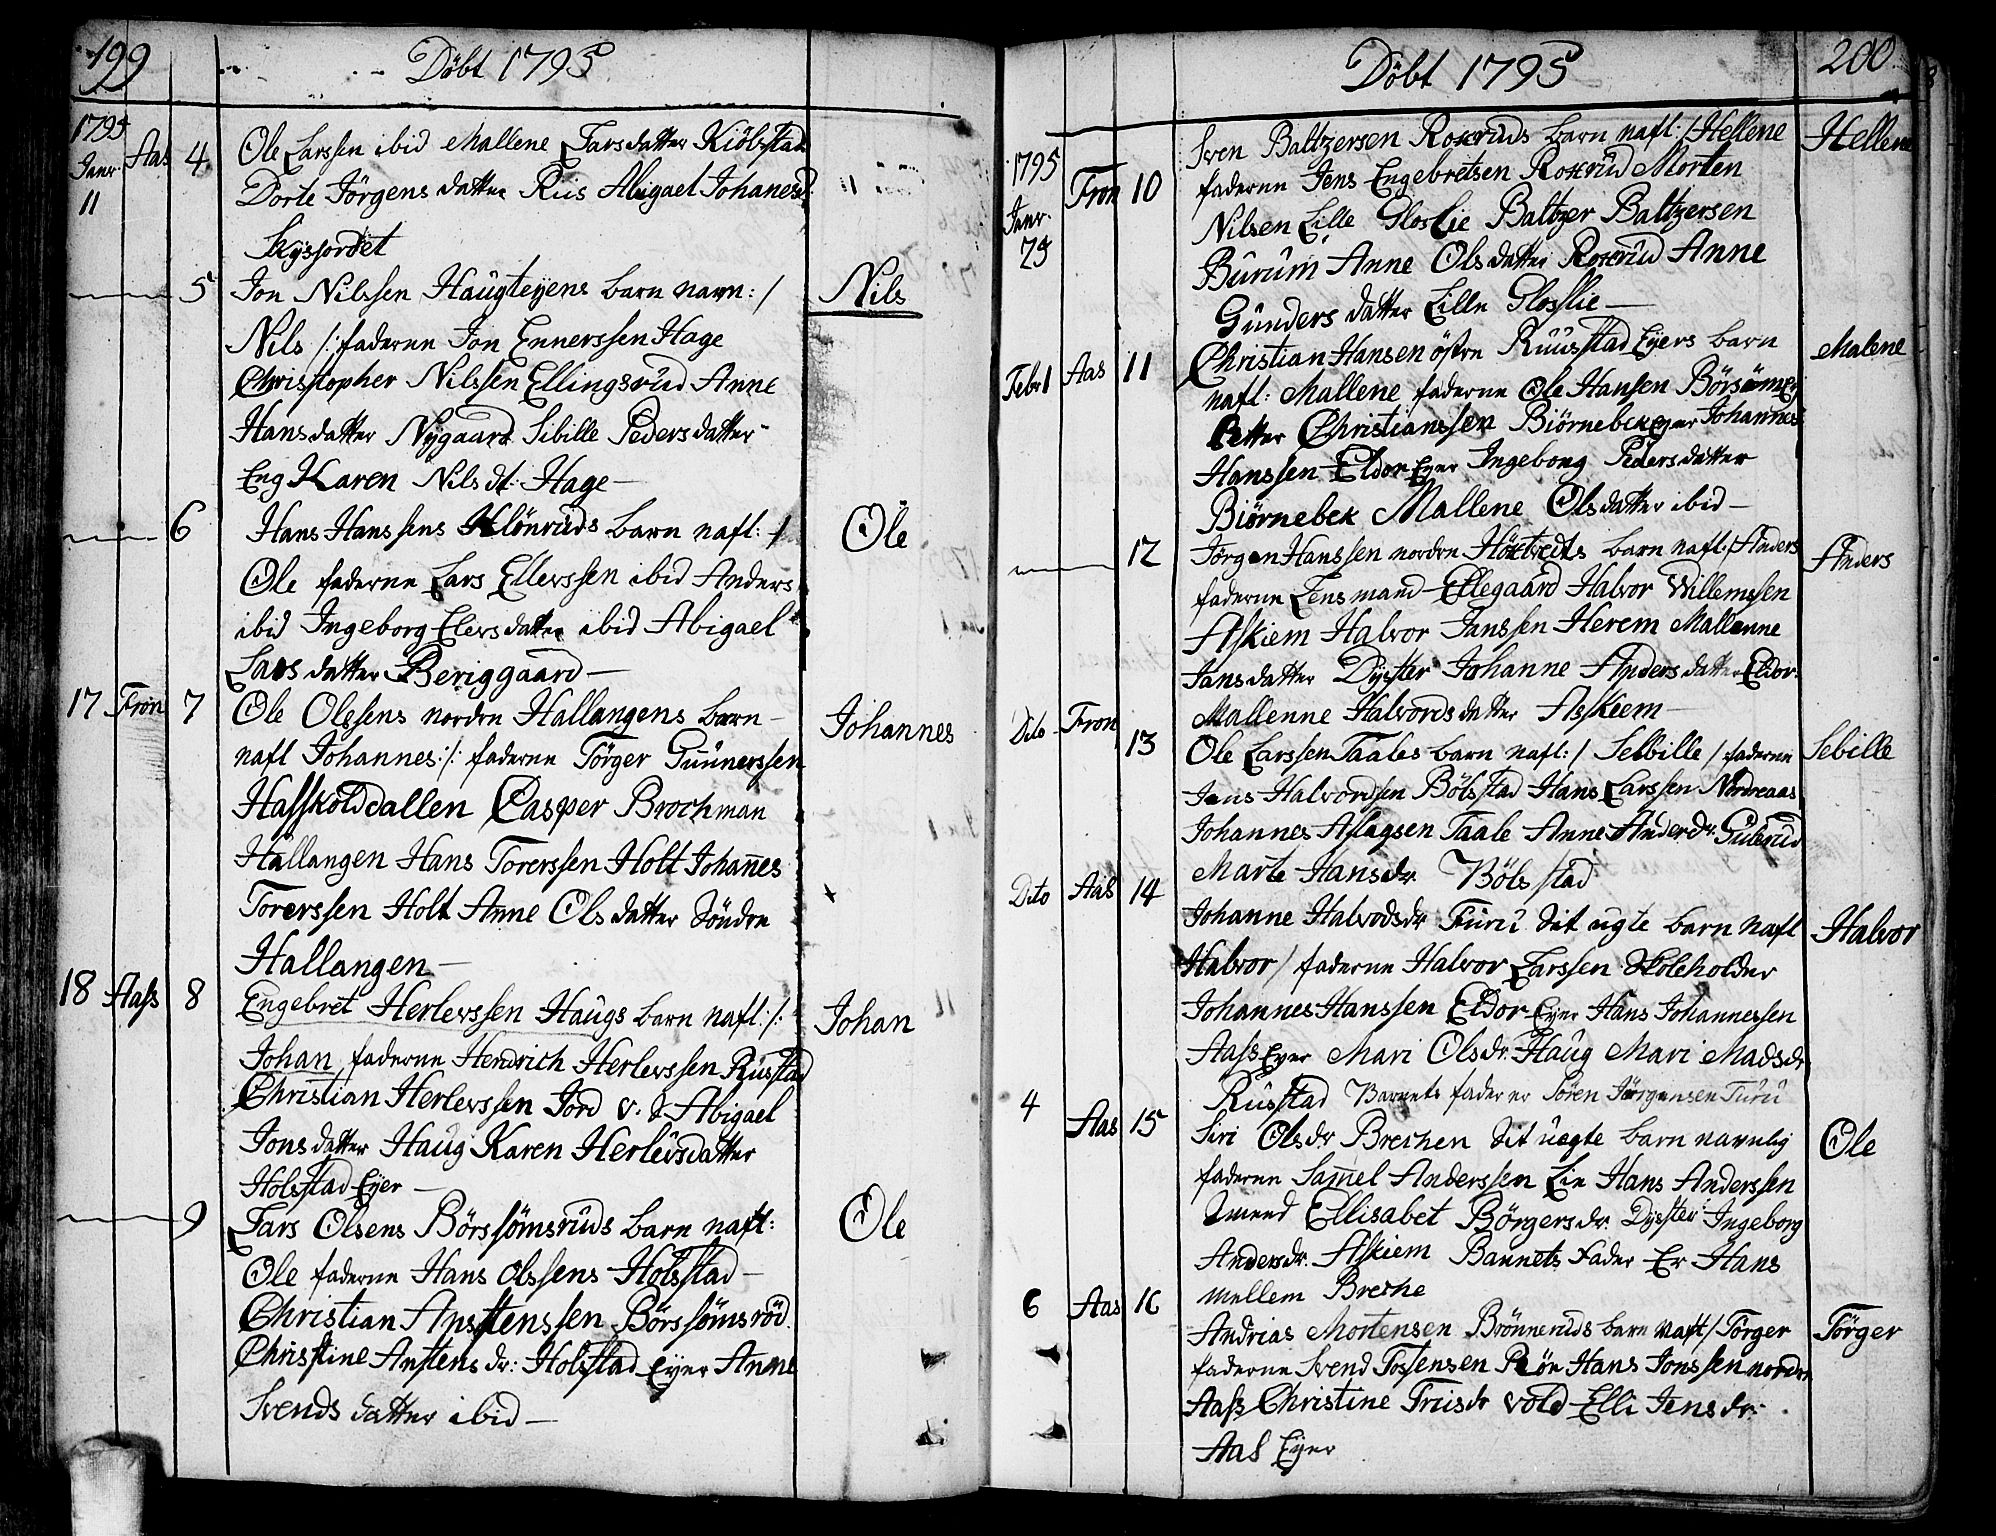 199 Döbt 1795
1795 Janr. 11 Aas 4 Ole Larssen ibid Mallene Larsdatter Kiölstad
Dorte Jörgens datter Riis Abigael Johanesd.
Skysjordet
5 Jon Nilssen Haugteyens barn navn: / Nils
Nils /: faderne Jon Ennerssen Hage
Christopher Nilssen Ellingsrüd Anne
Hansdatter Nygaard Sibille Pedersdatter
Eng Karen Nilsdt. Hage —
6 Hans Hanssens Klönrüds barn nafl: / Ole
Ole faderne Lars Ellerssen ibid Anders
ibid Ingeborg Elersdatter ibid Abigael
Larsdatter Beriggaard —
17 Fron 7 Ole Olssens nordre Hallangens barn Johannes
nafl Johannes :/: faderne Törger Günnerssen
Hasskolddallen Casper Brochman
Hallangen Hans Torerssen Holt Johannes
Torerssen Holt Anne Olsdatter Söndre
Hallangen —
18 Aass 8 Engebret Herlevssen Haugs barn nafl: /: Johan
Johan faderne Hendrich Herlevssen Rüstad
Christian Herlevssen Jord v. d Abigael
Jonsdatter Haug Karen Herlevsdatter
Holstad Eyer —
9 Lars Olsens Börssömsrüds barn nafl: Ole
Ole faderne Hans Olssens Holstad —
Christian Anstenssen Börssömsröd
Christine Anstens dr: Holstad Eyer Anne
Svends datter ibid —
Döbt 1795 200
1795 Janr. 25 Fron 10 Sven Baltzersen Roskrüds barn nafl: / Hellene Hellene
faderne Jens Engebretsen Roskrüd Morten
Nilsen Lille Gloslie Baltzer Baltzersen
Bürüm Anne Olsdatter Roskrüd Anne
Günders datter Lille Gloslie —
Febr 1 Aas 11 Christian Hansen östre Ruüstad Eyers barn Malene
nafl: Mallene faderne Ole Hansen Börsöm Ey
Petter Christianssen Biörnebek Eyer Johannes
Hanssen Eldor Eyer Ingeborg Pedersdatter
Biörnebek Mallene Olsdatter ibid —
12 Jörgen Hanssen nordre Höktvedts barn nafl: / Anders Anders
faderne Lensmand Ellegaard Halvor Willemssen
Askiem Halvor Janssen Herem Mallenne
Jansdatter Dyster Johanne Andersdatter Eldor
Mallenne Halvordsdatter Askiem —
Dito Fron 13 Ole Larssen Taales barn nafl: / Selbille / faderne Sebille
Jens Halvordsen Bölstad Hans Larssen Nordreaas
Johannes Aslagsen Taale Anne Anderdr. Gülerüd
Marte Hansdr. Bölstad
Dito Aas 14 Johanne Halvodsdr Furü Sit ugte barn nafl Halvor
Halvor / faderne Halvor Larssen Skoleholder
Johannes Hanssen Eldor Eyer Hans Johannessen
Aass Eyer Mari Olsdr. Haug Mari Madsdr
Rüstad Barnets fader er Sören Jörgensen Furü
4 Aas 15 Siri Olsdr Brechen Sit uegte barn navnlig Ole
faderne Samel Anderssen Lie Hans Anderssen
Smeed Ellisabet Börgersdr. Dyster Ingeborg
Andersdr. Askiem Bannets Fader Er Hans
mellem Breche
6 Aas 16 Andrias Mortensen Brönnerüds barn nafl / Törger Törger
faderne Svend Tostensen Röe Hans Jonssen nordre
Aass Christine Friisdr vold Elli Jensdr:
Aas Eyer